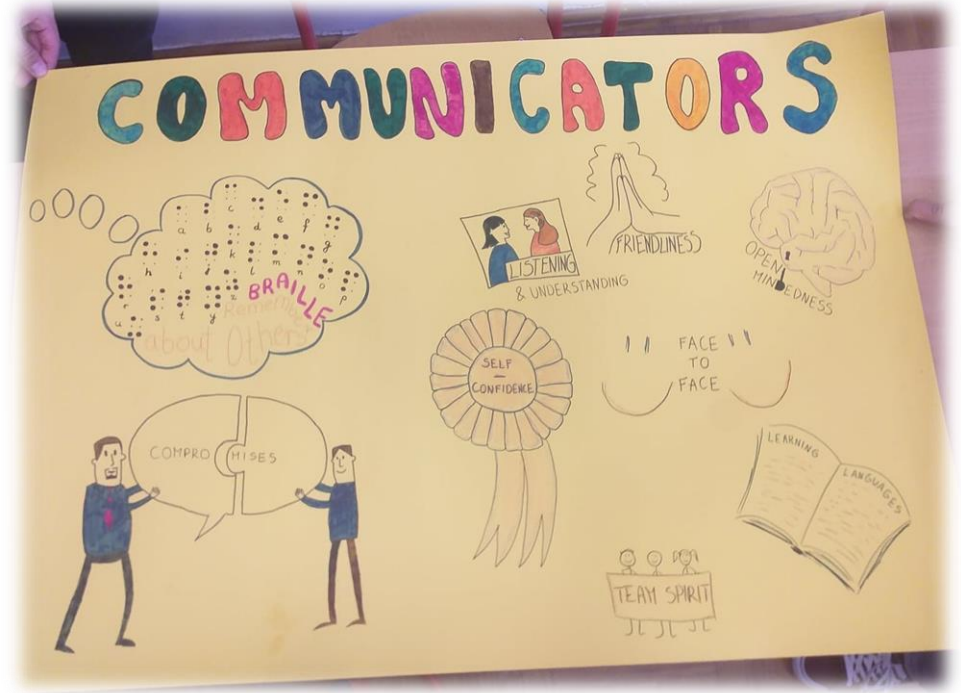 COMMUNICATORS
a b c d e f g
h i j k l m n o p
r s t y z
BRAILLE
Remember
about Others
LISTENING
& UNDERSTANDING
FRIENDLINESS
OPEN
MINDEDNESS
SELF
CONFIDENCE
FACE
TO
FACE
COMPROMISES
LEARNING
LANGUAGES
TEAM SPIRIT